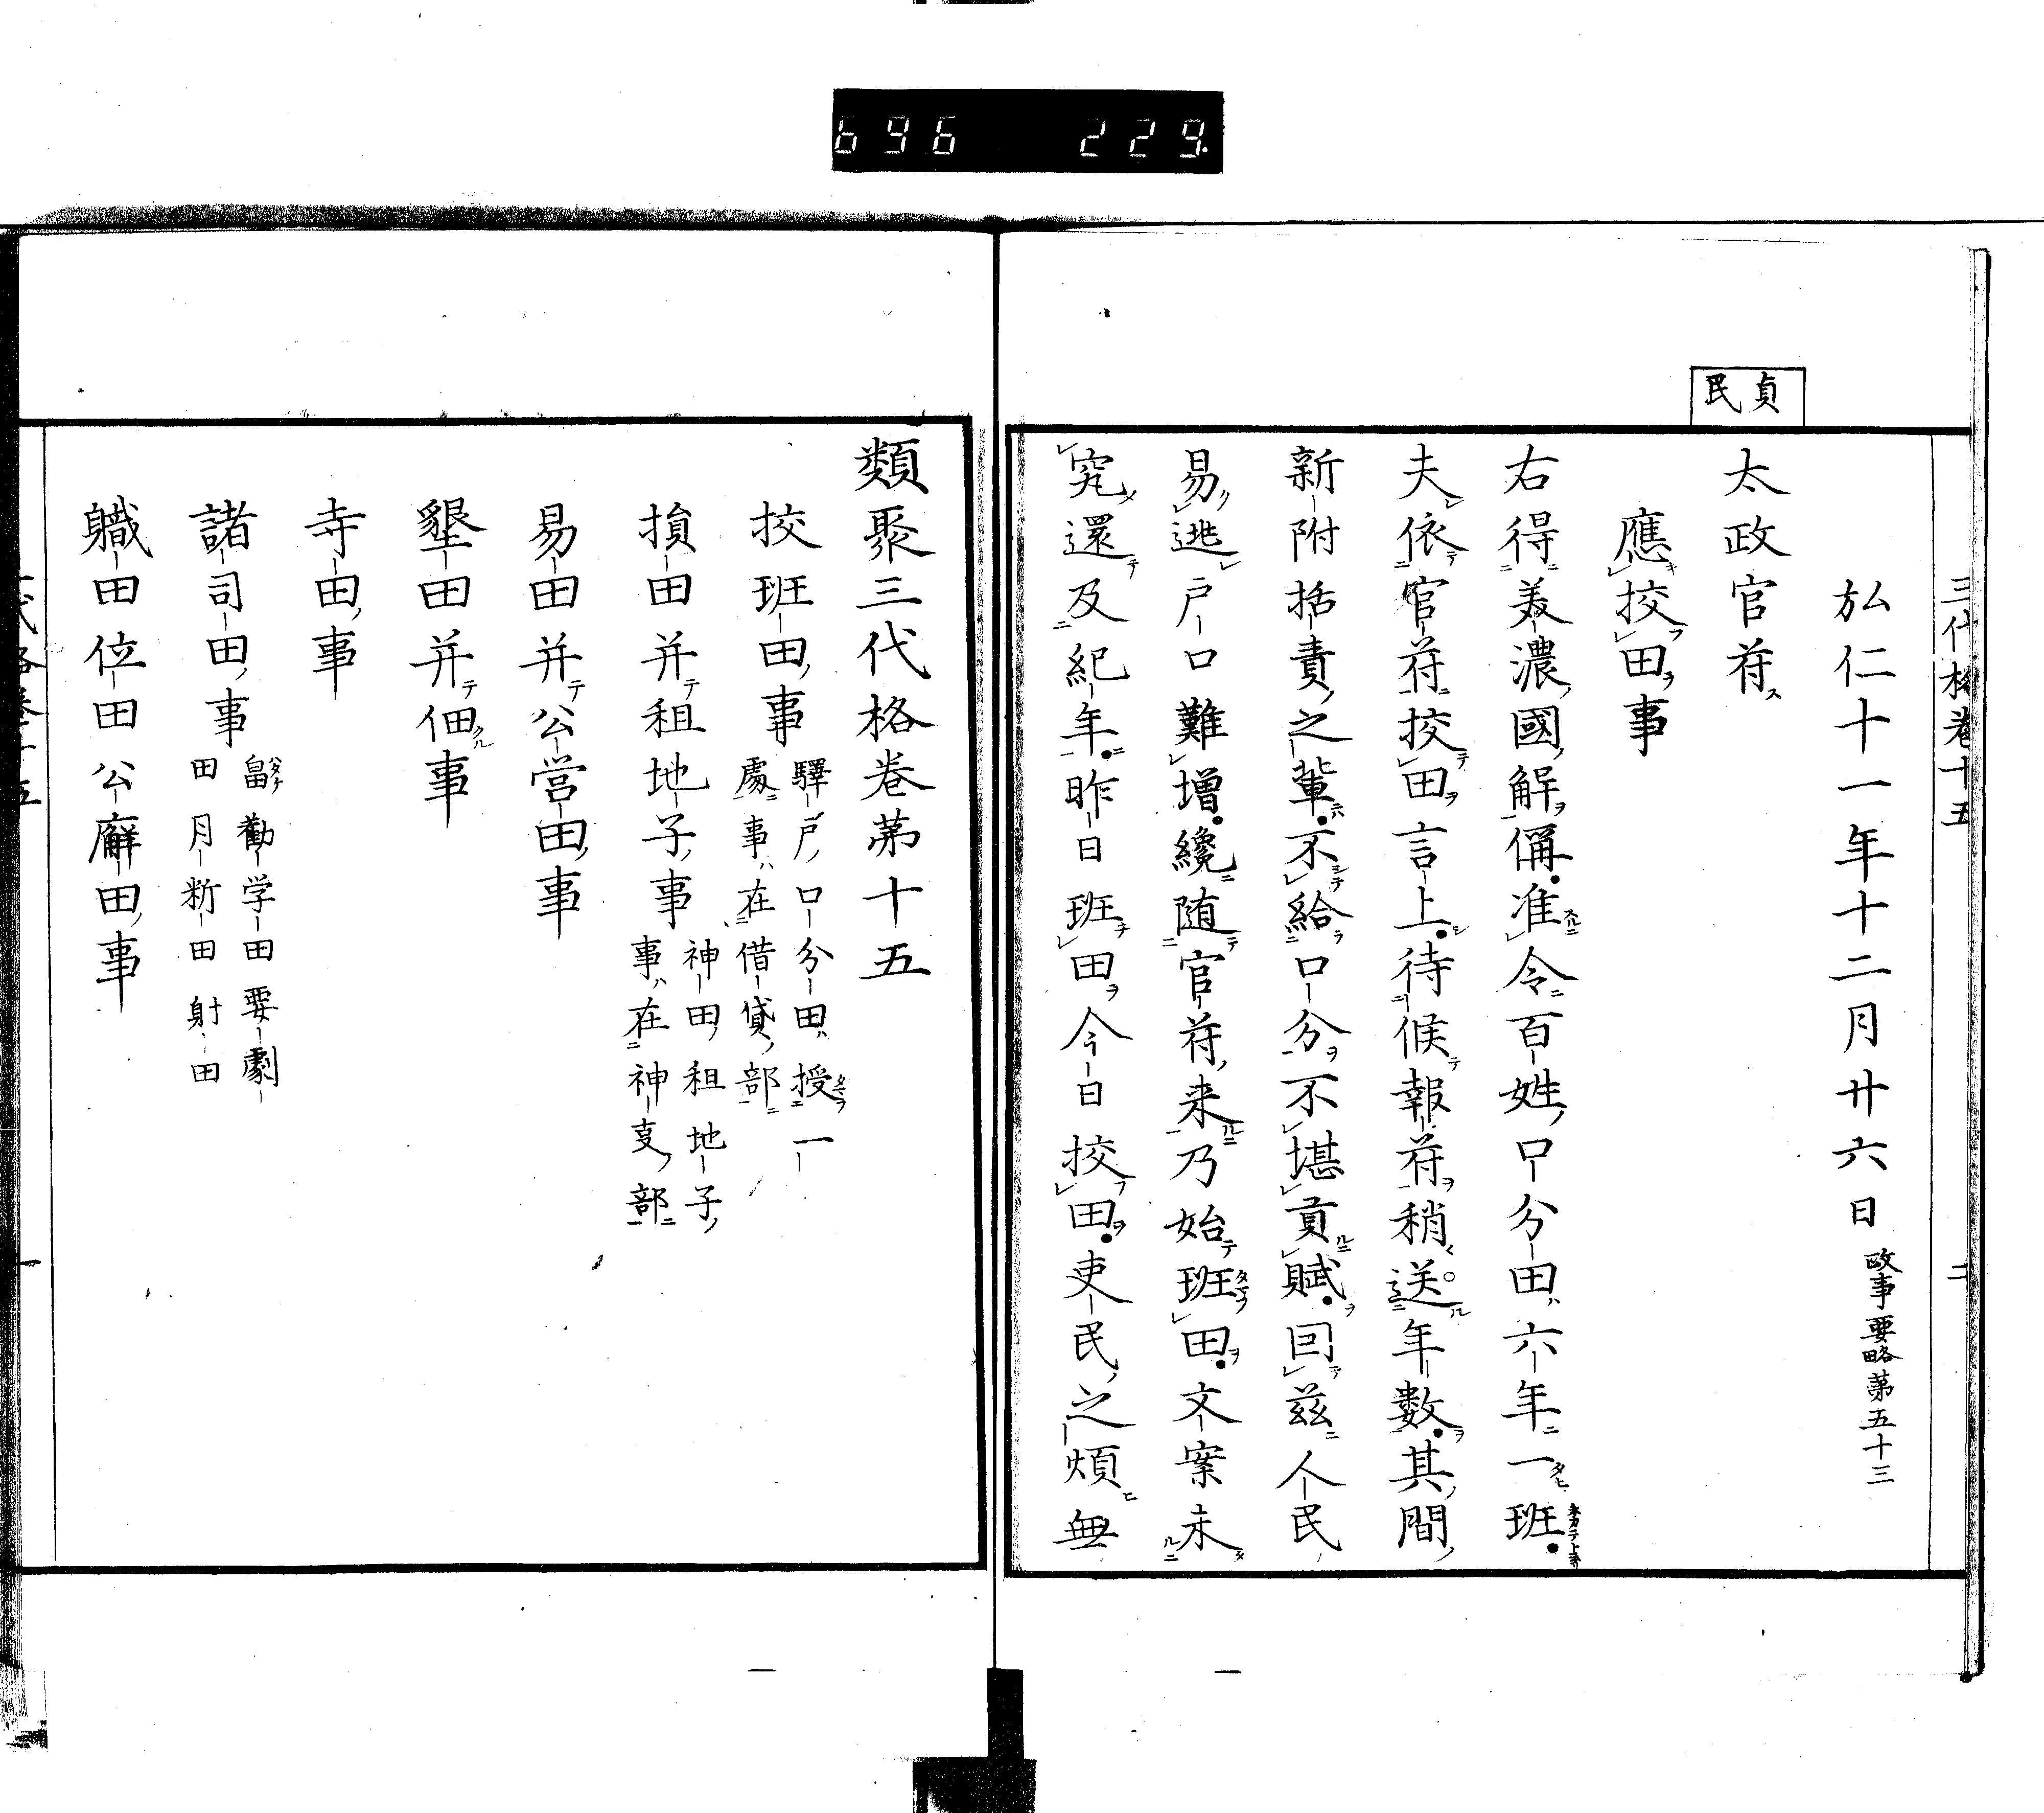 696 229.
三代格巻十五 二
弘仁十一年十二月廿六日 政事要略第五十三
貞民
太政官符
應挍田事
右得美濃國解偁准令百姓口分田六年一班
夫依官符挍田言上待候報符稍送年數其間
新附括責之輩不給口分不堪貢賦回茲人民
易逃戸口難増纔随官符来乃始班田文案未
究還及紀年昨日班田今日挍田吏民之煩無
類聚三代格巻第十五
挍班田事 驛戸口分田授一
處事在借貸部
損田并租地子事 神田租地子
事在神事部
易田并公営田事
墾田并佃事
寺田事
諸司田事 畠勸学田要劇
田月料田射田
職田位田公廨田事
一